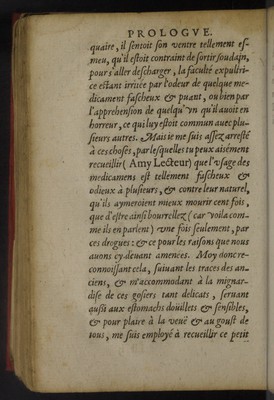 PROLOGVE.
quaire, il sentoit son ventre tellement es-
meu, qu'il estoit contraint de sortir soudain,
pour s'aller descharger, la faculté expultri-
ce estant irritée par l'odeur de quelque me-
dicament fascheux & puant, ou bien par
l'apprehension de quelqu'vn qu'il auoit en
horreur, ce qui luy estoit commun auec plu-
sieurs autres. Mais ie me suis assez arresté
à ces choses, par lesquelles tu peux aisément
recueillir ( Amy Lecteur) que l'vsage des
medicamens est tellement fascheux &
odieux à plusieurs, & contre leur naturel,
qu'ils aymeroient mieux mourir cent fois,
que d'estre ainsi bourrellez ( car voila com-
me ils en parlent) vne fois seulement, par
ces drogues: & ce pour les raisons que nous
auons cy deuant amenées. Moy donc re-
connoissant cela, suiuant les traces des an-
ciens, & m'accommodant à la mignar-
dise de ces gosiers tant delicats, seruant
aussi aux estomachs douillets & sensibles,
& pour plaire à la veuë & au goust de
tous, me suis employé à recueillir ce petit